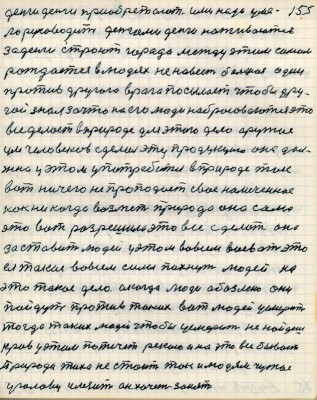 деньги деньги приобретают или надь ума- 155
го руководить деньгами деньги наживаются
за деньги строют города между этим самим
рождается в людях ненавист белкая один
против другого врага посылает чтобы дру-
гой знал за что на его люди набросоваются это
все делает в природе для этого дело оружие
ум человеков зделил эту продукцыю она дол-
жна у этом употребится в природе так
вот ничего не проподает свое намеченное
как никогда возмет природа она сама
это вот разрешила это все сделат она
заставит людей у этом вовсем воеват это
ей такая вовсем сила пахнут людей на
это такое дело а когда люди обозлено они
пойдут против таких вот людей умират
тогда таких людей чтобы умират не найдеш
кров у этом потечет рекою и на это все бывает
природа тиха не стоит так и людям чужое
уголовку имеит он хочет занят